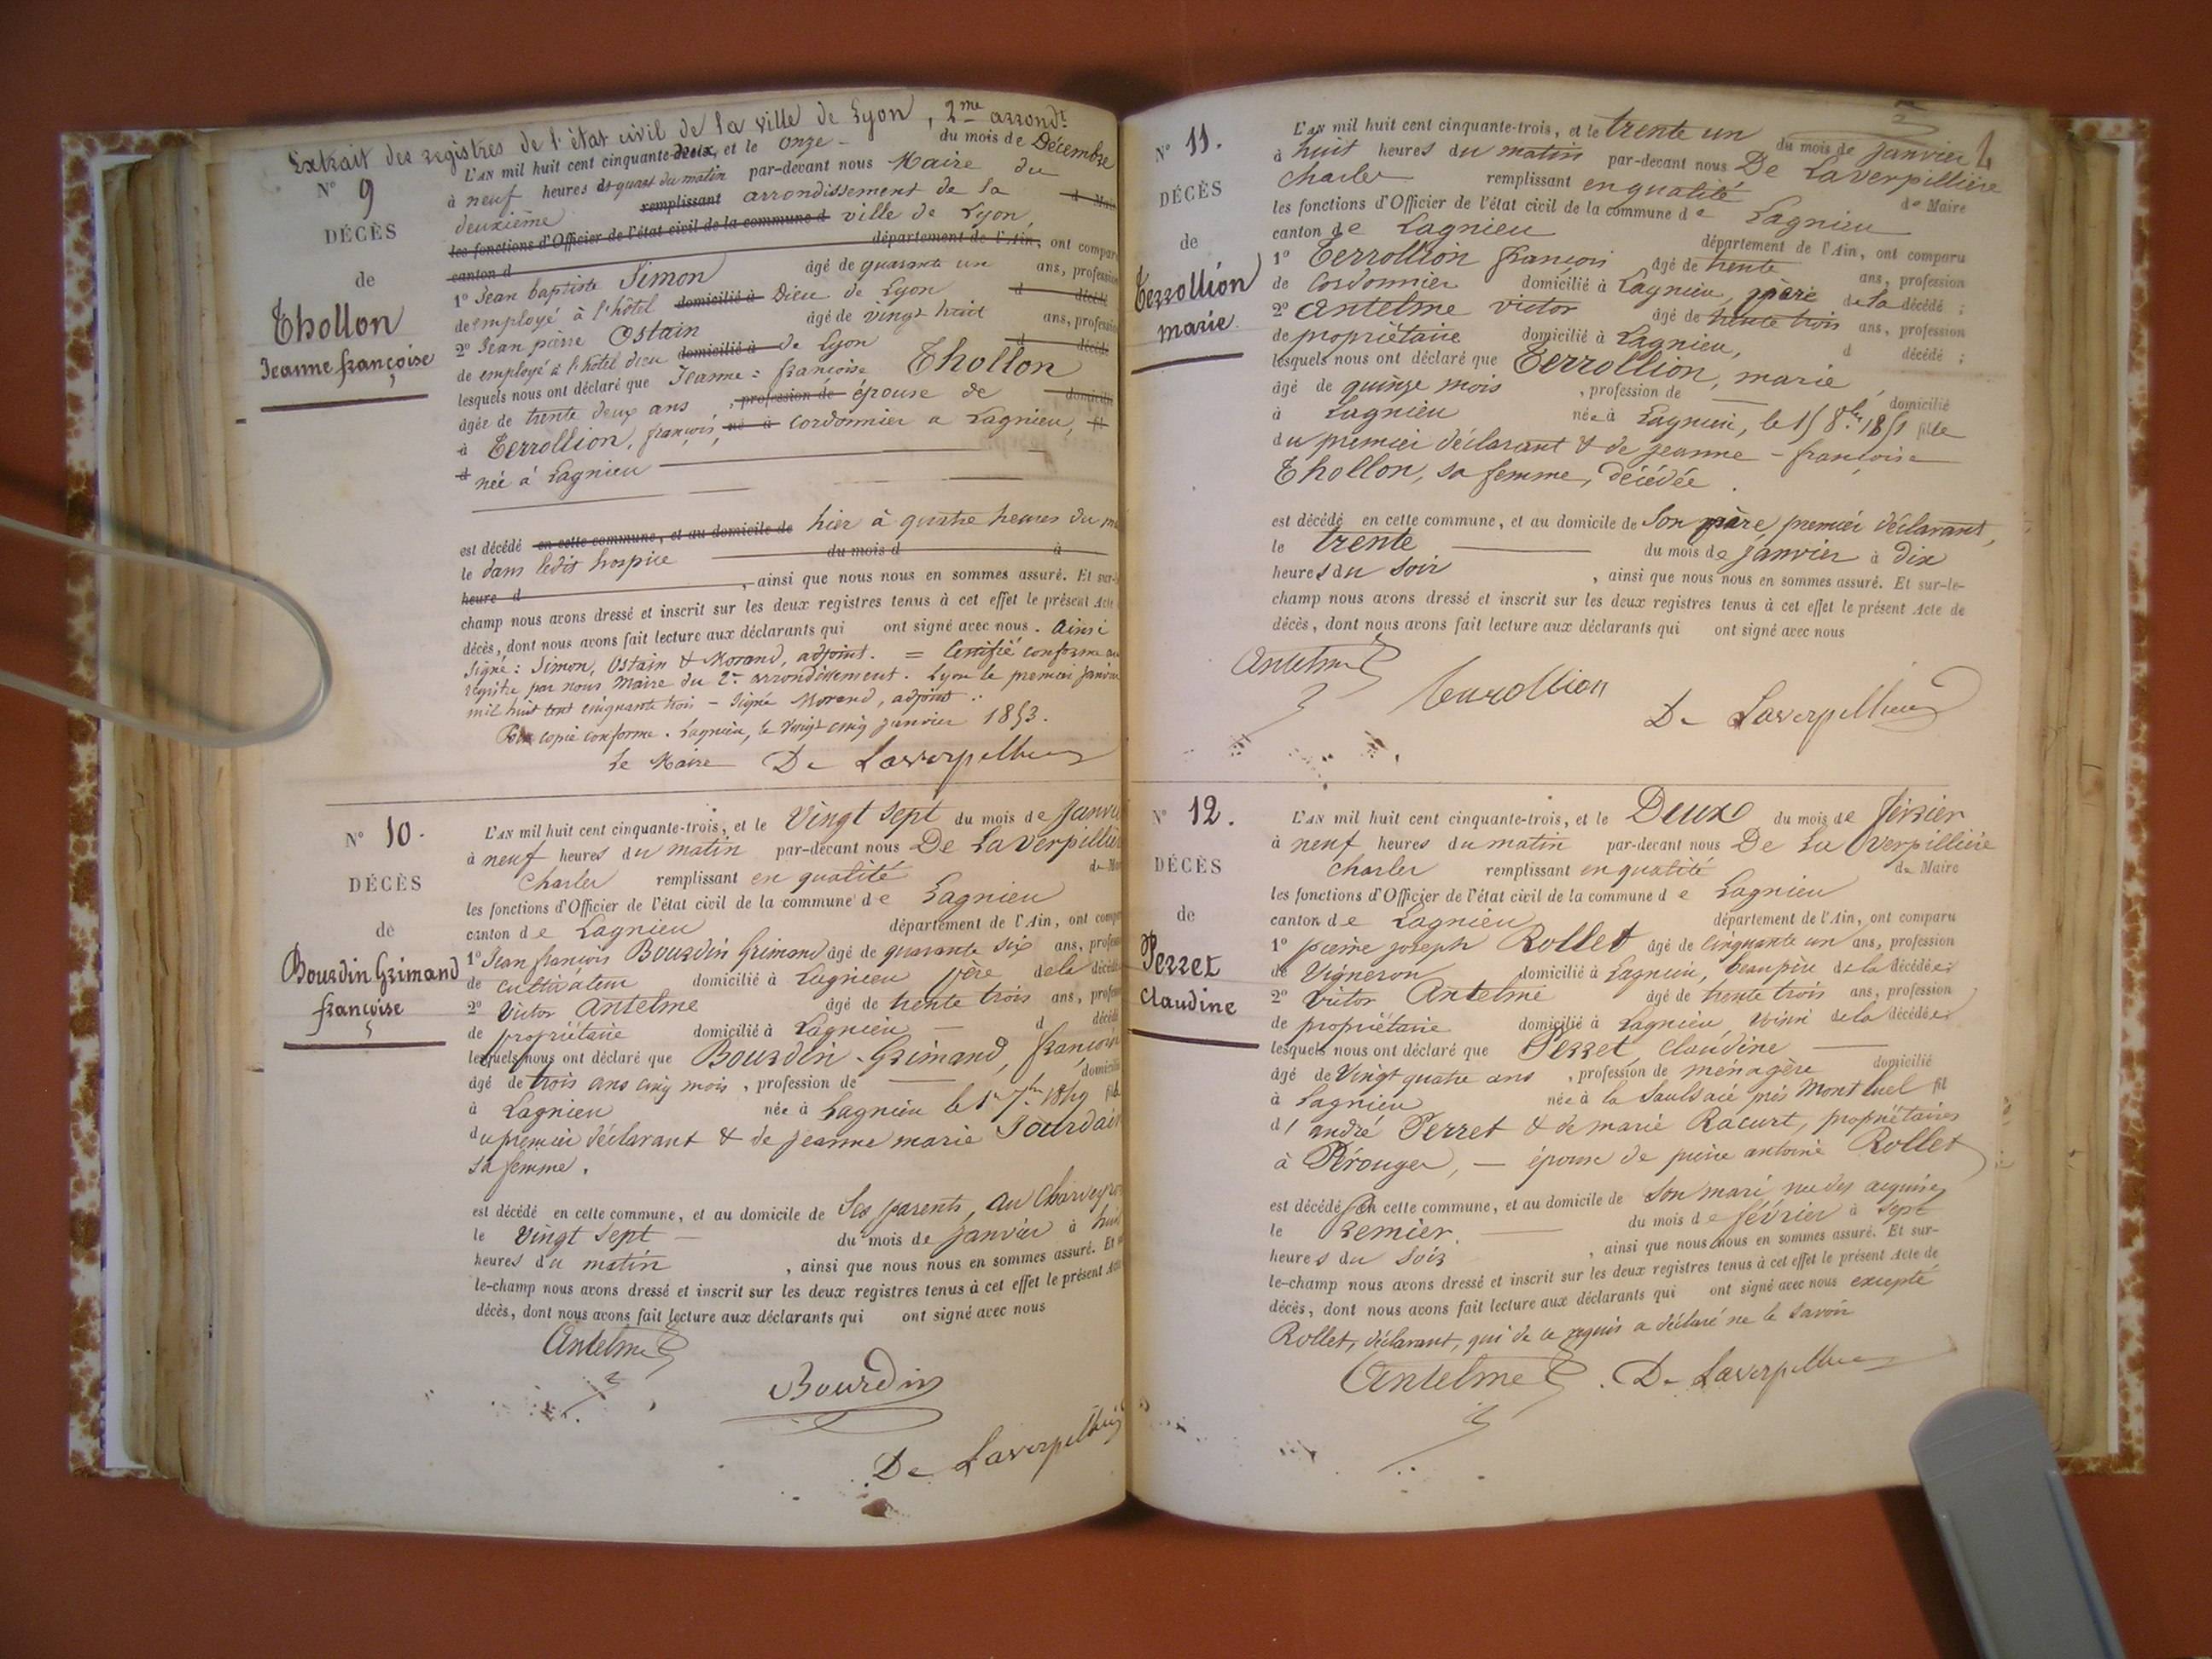 Extrait des registres de l'état civil de la ville de Lyon, 2me arrondt
N° 9
DÉCÈS
de
Thollon
Jeanne françoise
L'AN mil huit cent cinquante-deux, et le onze du mois de Décembre
à neuf heures et quart du matin par-devant nous Maire du
deuxième remplissant arrondissement de la
les fonctions d'Officier de l'état civil de la commune d ville de Lyon,
canton d département de l'Ain, ont comparu
1° Jean baptiste Simon âgé de quarante un ans, profession
de employé à l'hôtel domicilié à Dieu de Lyon d décédé
2° Jean pierre Ostain âgé de vingt huit ans, profession
de employé à l'hôtel dieu domicilié à de Lyon d décédé
lesquels nous ont déclaré que Jeanne = françoise Thollon
âgée de trente deux ans, profession de épouse de domicilié
à Terrollion, françois, né à cordonnier a Lagnieu, fil
d née à Lagnieu
est décédé en cette commune, et au domicile de hier à quatre heures du
le dans ledit hospice du mois d à
heure d , ainsi que nous nous en sommes assuré. Et sur-le-
champ nous avons dressé et inscrit sur les deux registres tenus à cet effet le présent Acte
décès, dont nous avons fait lecture aux déclarants qui ont signé avec nous. Ainsi
Signé : Simon, Ostain & Morand, adjoint. = Certifié conforme au
registre par nous Maire du 2e arrondissement. Lyon le premier janvier
mil huit cent cinquante trois - Signé Morand, adjoint :
Pour copie conforme. Lagnieu, le vingt cinq janvier 1853.
Le Maire De Laverpilliere
N° 10.
DÉCÈS
de
Bourdin Grimand
françoise
L'AN mil huit cent cinquante-trois, et le Vingt sept du mois de Janvier
à neuf heures du matin par-devant nous De La Verpillière
Charles remplissant en qualité de Maire
les fonctions d'Officier de l'état civil de la commune de Lagnieu
canton de Lagnieu département de l'Ain, ont comparu
1° Jean françois Bourdin Grimand âgé de quarante six ans, profession
de cultivateur domicilié à Lagnieu père de la décédée
2° Victor Antelme âgé de trente trois ans, profession
de propriétaire domicilié à Lagnieu d décédé
lesquels nous ont déclaré que Bourdin-Grimand, françoise
âgé de trois ans cinq mois, profession de domicilié
à Lagnieu née à Lagnieu le 1r 7bre 1849 fille
du premier déclarant & de jeanne marie Jourdain
sa femme.
est décédé en cette commune, et au domicile de Ses parents, au Charveyron
le Vingt sept du mois de janvier à huit
heures du matin , ainsi que nous nous en sommes assuré. Et sur-
le-champ nous avons dressé et inscrit sur les deux registres tenus à cet effet le présent Acte
décès, dont nous avons fait lecture aux déclarants qui ont signé avec nous
Antelme
Bourdin
De Laverpilliere
N° 11.
DÉCÈS
de
Terrollion
marie
L'AN mil huit cent cinquante-trois, et le trente un du mois de janvier
à huit heures du matin par-devant nous De Laverpillière
Charles remplissant en qualité de Maire
les fonctions d'Officier de l'état civil de la commune de Lagnieu
canton de Lagnieu département de l'Ain, ont comparu
1° Terrollion françois âgé de trente ans, profession
de Cordonnier domicilié à Lagnieu, père de la décédé ;
2° Antelme victor âgé de trente trois ans, profession
de propriétaire domicilié à Lagnieu, d décédé ;
lesquels nous ont déclaré que Terrollion, marie
âgé de quinze mois , profession de domicilié
à Lagnieu née à Lagnieu, le 15 8bre 1851 fille
du premier déclarant & de jeanne - françoise
Thollon, sa femme, décédée.
est décédé en cette commune, et au domicile de Son père, premier déclarant,
le trente du mois de janvier à dix
heures du soir , ainsi que nous nous en sommes assuré. Et sur-le-
champ nous avons dressé et inscrit sur les deux registres tenus à cet effet le présent Acte de
décès, dont nous avons fait lecture aux déclarants qui ont signé avec nous
Antelme
Terrollion
De Laverpilliere
N° 12.
DÉCÈS
de
Perret
Claudine
L'AN mil huit cent cinquante-trois, et le Deux du mois de février
à neuf heures du matin par-devant nous De La Verpillière
Charles remplissant en qualité de Maire
les fonctions d'Officier de l'état civil de la commune de Lagnieu
canton de Lagnieu département de l'Ain, ont comparu
1° pierre joseph Rollet âgé de cinquante un ans, profession
de Vigneron domicilié à Lagnieu, beau père de la décédée ;
2° Victor Antelme âgé de trente trois ans, profession
de propriétaire domicilié à Lagnieu, voisin de la décédée ;
lesquels nous ont déclaré que Perret, Claudine
âgé de Vingt quatre ans , profession de ménagère domicilié
à Lagnieu née à la Saulsaie près Montluel fil
d'andré Perret & de marie Racurt, propriétaires
à Pérouges, - épouse de pierre antoine Rollet
est décédé en cette commune, et au domicile de Son mari, rue des
le Premier. du mois de février à Sept
heures du Soir , ainsi que nous nous en sommes assuré. Et sur-
le-champ nous avons dressé et inscrit sur les deux registres tenus à cet effet le présent Acte de
décès, dont nous avons fait lecture aux déclarants qui ont signé avec nous excepté
Rollet, déclarant, qui de ce requis a déclaré ne le savoir
Antelme. De Laverpilliere